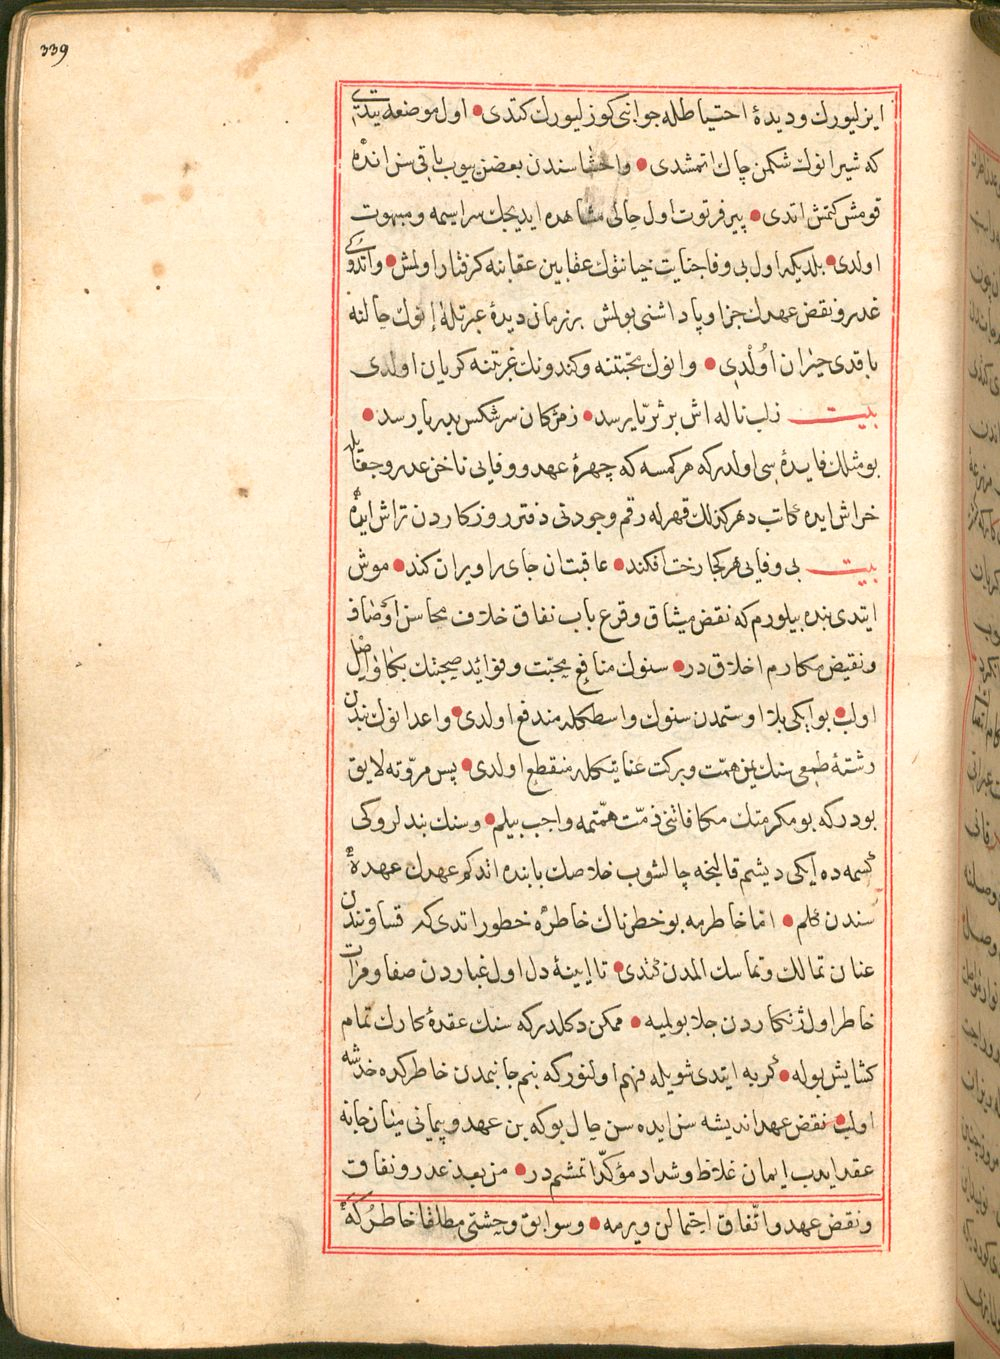 339
ایزلیورك ودیدهٔ احتیاطله جوانبی کوزلیورك کتدی • اول موضعه یتدی
که شیر انوك شکمن چاك اتمشدی • واحشاسندن بعضن ییوب باقی سن انده
قومش کتمش اتدی • پیر فرتوت اول حالی مشاهده ایدیجك سراسیمه ومبهوت
اولدی • بلدیکه اول بی وفا جنایت خیانتوك عقابین عقابنه کرفتار اولمش •
غدر ونقض عهدك جزا وپاداشنی بولمش بر زمان دیدهٔ عبرتله انوك حالنه
باقدی حیران اولدی • وانوك محبتنه وکندونك غربتنه کریان اولدی
بیت زلب ناله اش بر ثریا رسد • زمژکان سرشکس بدریا رسد •
بو مثلك فایده سی اولدرکه هر کمسه که چهرهٔ عهد ووفایی ناخن غدر وجفایله
خراش ایده کاتب دهر کزلك قهرله رقم وجودنی دفتر روزکاردن تراش ایده
بیت بی وفایی هر کجا رخت افکند • عاقبت ان جای را ویران کند • موش
ایتدی بنده بیلورم که نقض میثاق وقرع باب نفاق خلاف محاسن اوصاف
ونقیض مکارم اخلاق در • سنوك منافع محبت وفواید صحبتك بکا واصل
اولب • بو ایکی بلا اوستمدن سنوك واسطکله مندفع اولدی • واعدانوك بندن
رشتهٔ طمعی سنك یمن همت وبرکت عنایتکله منقطع اولدی • پس مروته لایق
بودرکه بو مکرمتك مکافاتنی ذمت همتمه واجب بیلم • وسنك بندلروکی
کسمه ده ایکی دیشم قالنجه چالشوب خلاصك بابنده اتدکم عهدك عهده
سندن کلم • اما خاطرمه بو خطرناك خاطره خطور اتدی که قساوتندن
عنان تمالك وتماسك المدن کتدی • تا ایینهٔ دل اول غباردن صفا ومرات
خاطر اول ژنکاردن جلا بولمیه • ممکن دکلدرکه سنك عقدهٔ کارك تمام
کشایش بوله • کربه ایتدی شویله فهم اولنورکه بنم جانبمدن خاطرکده خدشه
اولب • نقض عهد اندیشه سن ایده سن حال بوکه بن عهد وپیمانی میان جانه
عقد ایدب ایمان غلاظ وشداد مؤکد اتمشم در • من بعد غدر ونفاق
ونقض عهد واتفاق احتمالن ویرمه • وسوابق وحشتی مطلقا خاطرکه